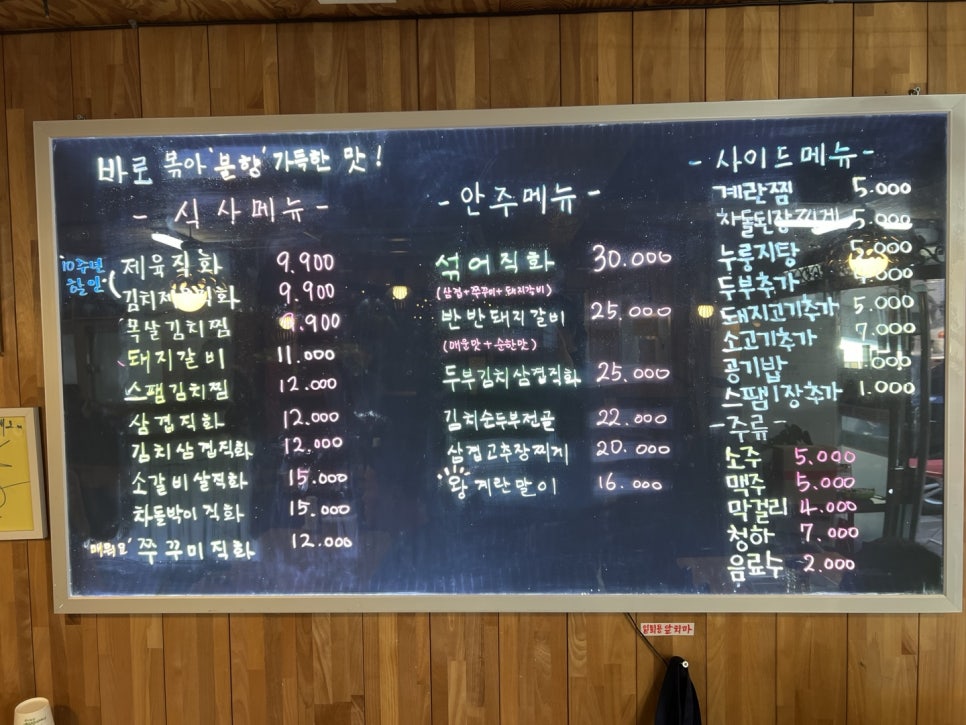 바로 볶아 '불향' 가득한 맛!
- 식사메뉴 -
10주년 할인
제육직화 9.900
김치제육직화 9.900
목살김치찜 9.900
돼지갈비 11.000
스팸김치찜 12.000
삼겹직화 12.000
김치삼겹직화 12.000
소갈비살직화 15.000
차돌박이직화 15.000
'매워요' 쭈꾸미직화 12.000
- 안주메뉴 -
섞어직화 30.000
(삼겹+쭈꾸미+돼지갈비)
반반돼지갈비 25.000
(매운맛+순한맛)
두부김치삼겹직화 25.000
김치순두부전골 22.000
삼겹고추장찌개 20.000
왕계란말이 16.000
- 사이드메뉴 -
계란찜 5.000
차돌된장찌게 5.000
누룽지탕 5.000
두부추가
돼지고기추가 5.000
소고기추가 7.000
공기밥 1.000
스팸1장추가 1.000
- 주류 -
소주 5.000
맥주 5.000
막걸리 4.000
청하 7.000
음료수 2.000
앞치마